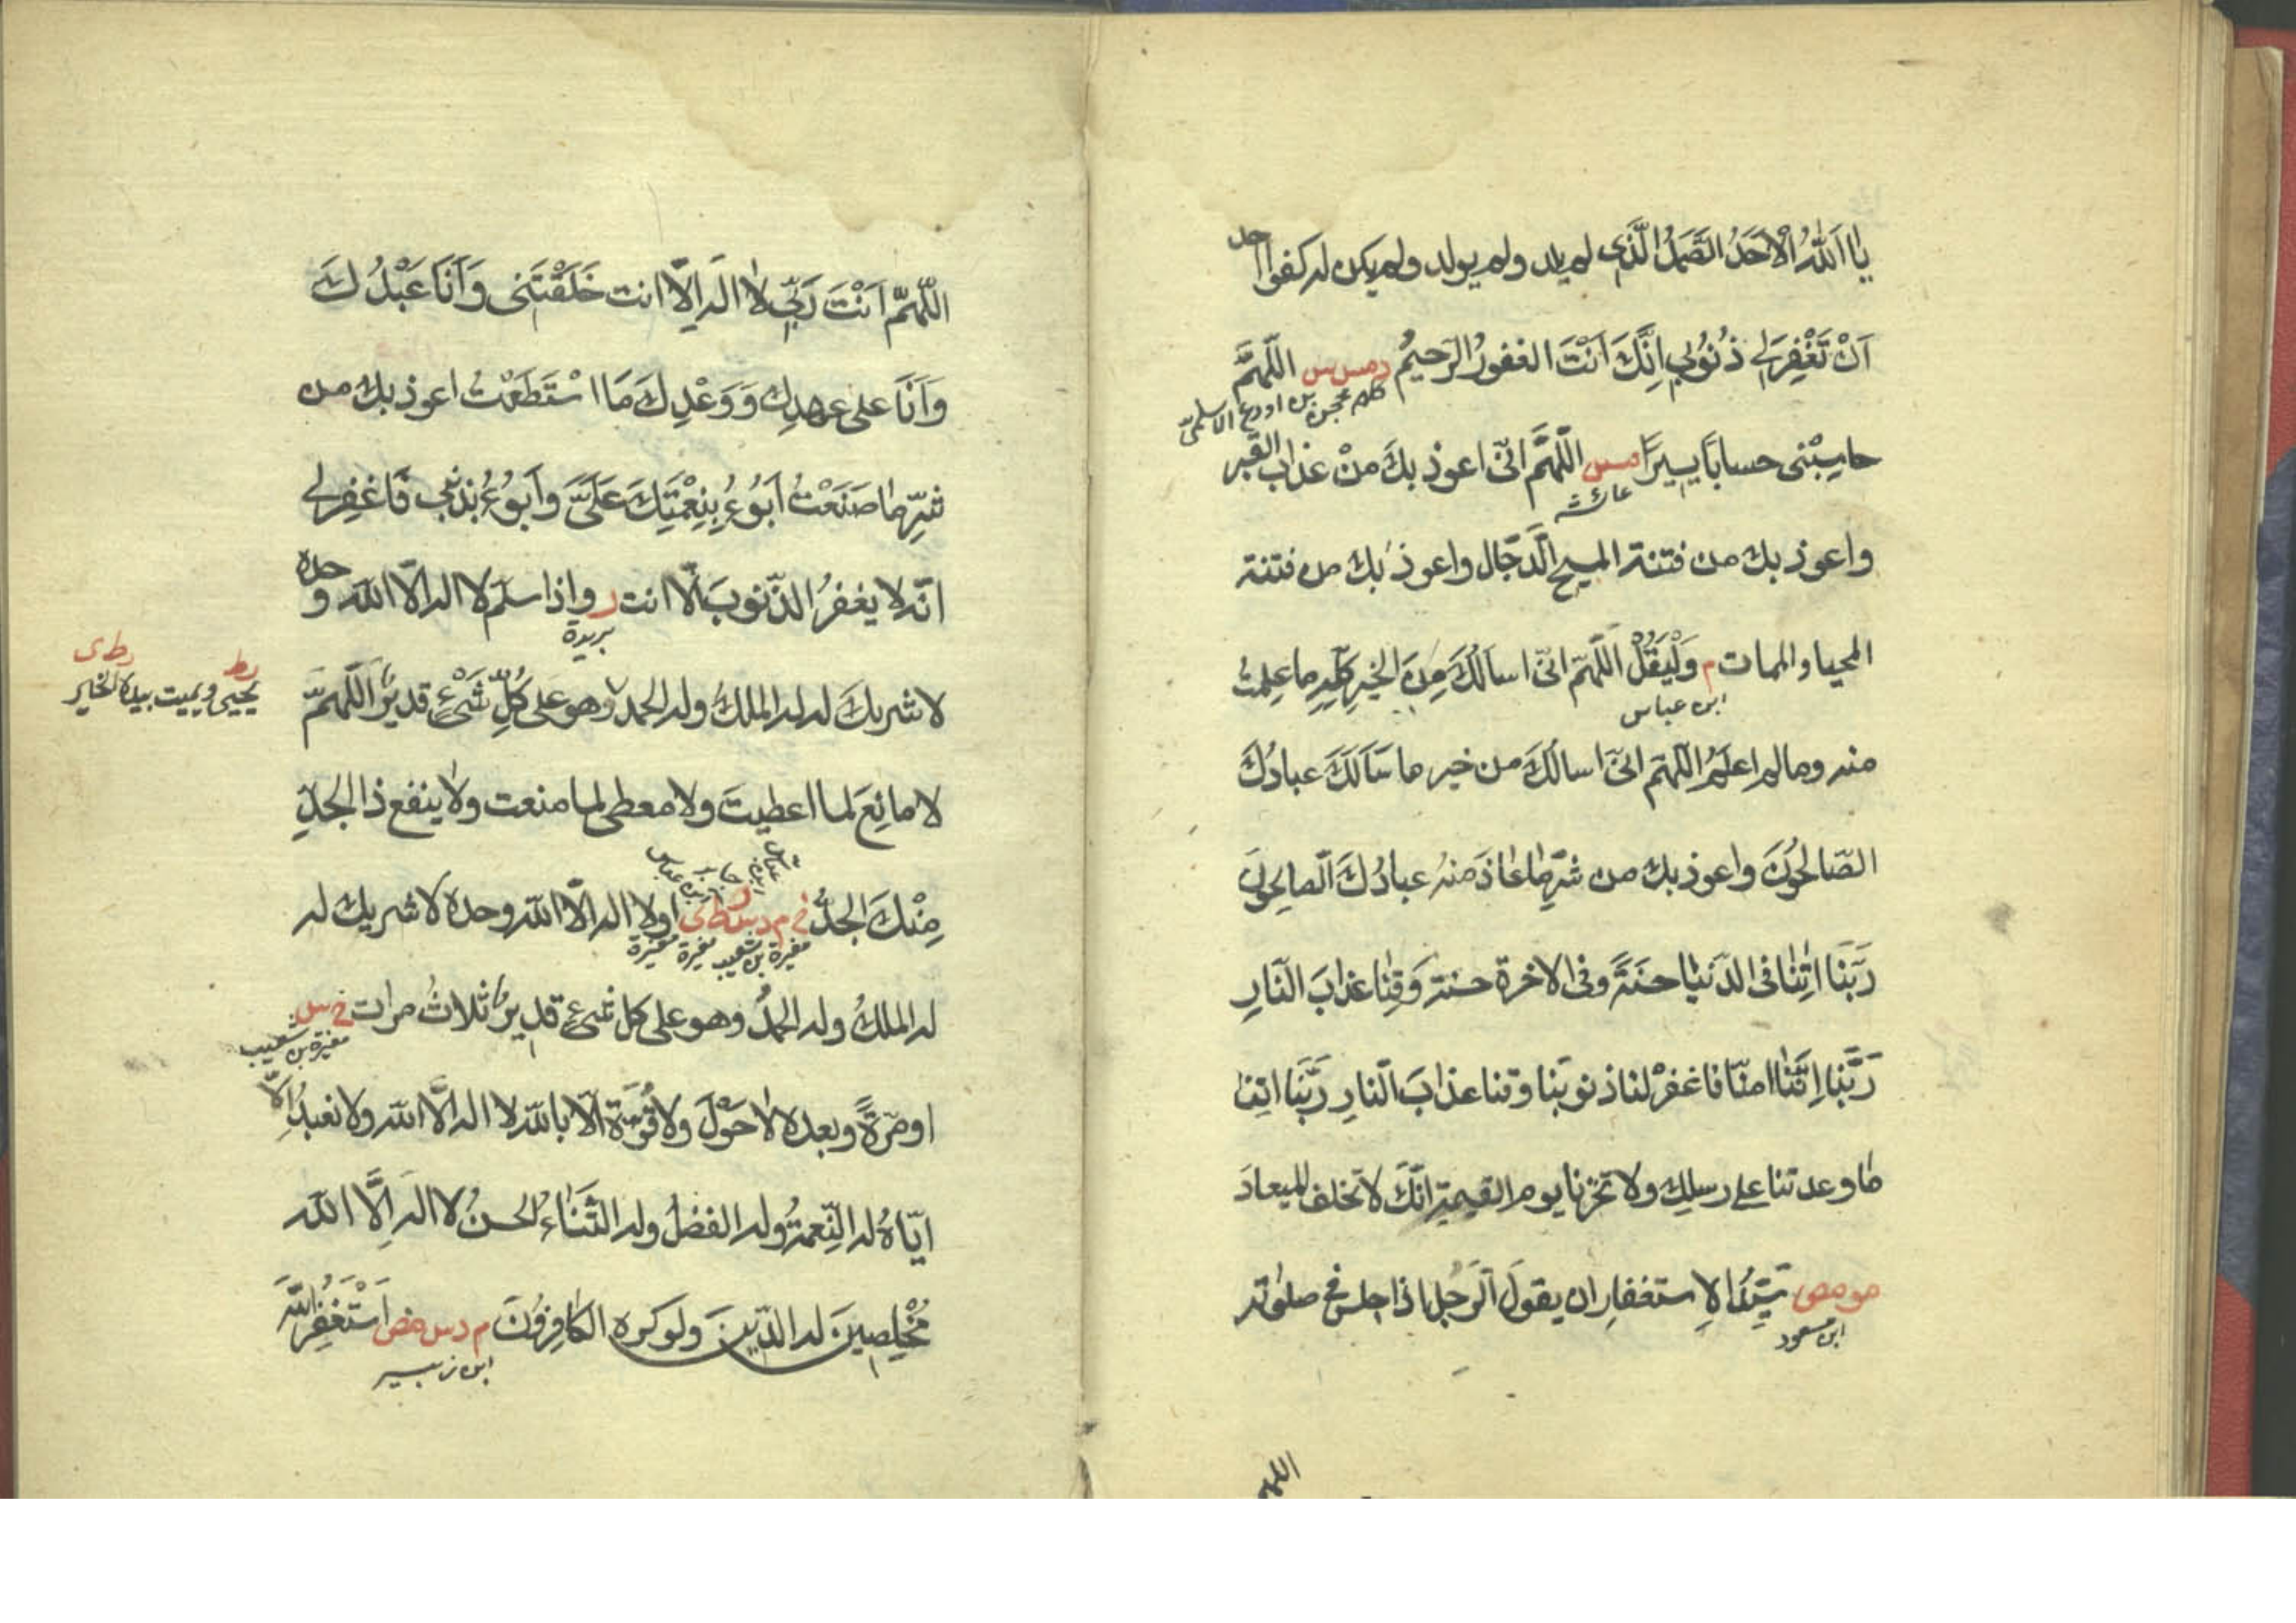 يا اَللّٰهُ الْاَحَدُ الصَّمَدُ الَّذِى لم يلد ولم يولد ولم يكن له كفوا احد
اَنْ تَغْفِرَلِي ذُنُوبِي اِنَّكَ اَنْتَ الغفورُ الرَّحيمُ د مس س اللّهمَّ
كلهم محجن بن اودرع الاسلمى
حاسِبْنى حسابًا يسيرًا مس اللّهمَّ انّى اعوذ بكَ مِنْ عذاب القبر
عائشه
واعوذ بك من فتنة المسيح الدَّجّال واعوذ بك من فتنة
المحيا والممات م وَلْيَقُلْ اللّهمّ انّى اسألكَ مِنَ الخيرِ كلِّه ما علِمتُ
ابن عباس
منه وما لم اعلم اللّهمّ انّى اسالكَ من خير ما سَاَلَكَ عبادُكَ
الصّالحُونَ واعوذ بك من شرِّ ما عاذَ منهُ عبادُكَ الصالحون
رَبَّنَا اٰتِنَا فى الدّنيا حسنَةً وفى الاخرة حسنة وَقِنَا عذابَ النّارِ
رَبَّنَا اِنَّنَا امنّا فاغفرْ لنا ذنوبَنا وقنا عذابَ النّارِ رَبَّنَا اتِنا
ما وعدتنا على رسلِك ولا تخزنا يوم القيمة انّكَ لا تخلف الميعادَ
مو مص سَيِّدُ الاِستغفارِ ان يقولَ الرَّجُل اذا جلس فى صلوته
ابن مسعود
اللهم
اللّهمَّ اَنْتَ رَبِّي لا اله اِلّا انت خَلَقْتَنِى وَاَنَا عَبْدُكَ
وَاَنَا على عهدِك وَوَعْدِكَ مَا اسْتَطَعْتُ اعوذ بك من
شرِّ ما صَنَعْتُ اَبُوءُ بِنِعْمَتِكَ عَلَىَّ وَاَبوُءُ بذنبى فَاغفِرلى
انّه لا يغفرُ الذّنوبَ الّا انت ر واذا سلّم لا اله الّا الله وحده
بريدة
لا شريكَ له له الملكُ وله الحمد وهو على كُلِّ شَىْءٍ قديرٌ اللّهمَّ
رط رط ى
يحيى ويميت بيده الخير
لا مانِعَ لما اعطيتَ ولا معطى لما منعت ولا ينفع ذا الجدِّ
مِنْكَ الجدُّ خ م د س ر ط ى او لا اله الّا الله وحده لا شريك له
مغيرة بن شعيب مغيرة مغيرة
له الملكُ وله الحمدُ وهو على كل شىءٍ قديرٌ ثلاثُ مرات خ س
مغيرة بن شعيب
او مرّةً وبعده لا حَوْلَ ولا قُوَّةَ الّا بالله لا اله الّا الله ولا نعبدُ الّا
ايّاهُ له النِّعمةُ وله الفضلُ وله الثَّنَاءُ الحسنُ لا اله اِلَّا الله
مُخْلِصِينَ له الدّينَ ولو كره الكافِرُونَ م د س مص اَسْتَغْفِرُ الله
ابن زبير